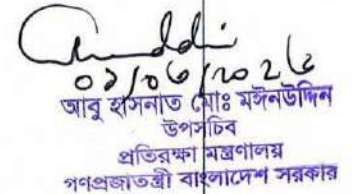 আবু হাসনাত মোঃ মঈনউদ্দিন
উপসচিব
প্রতিরক্ষা মন্ত্রণালয়
গণপ্রজাতন্ত্রী বাংলাদেশ সরকার